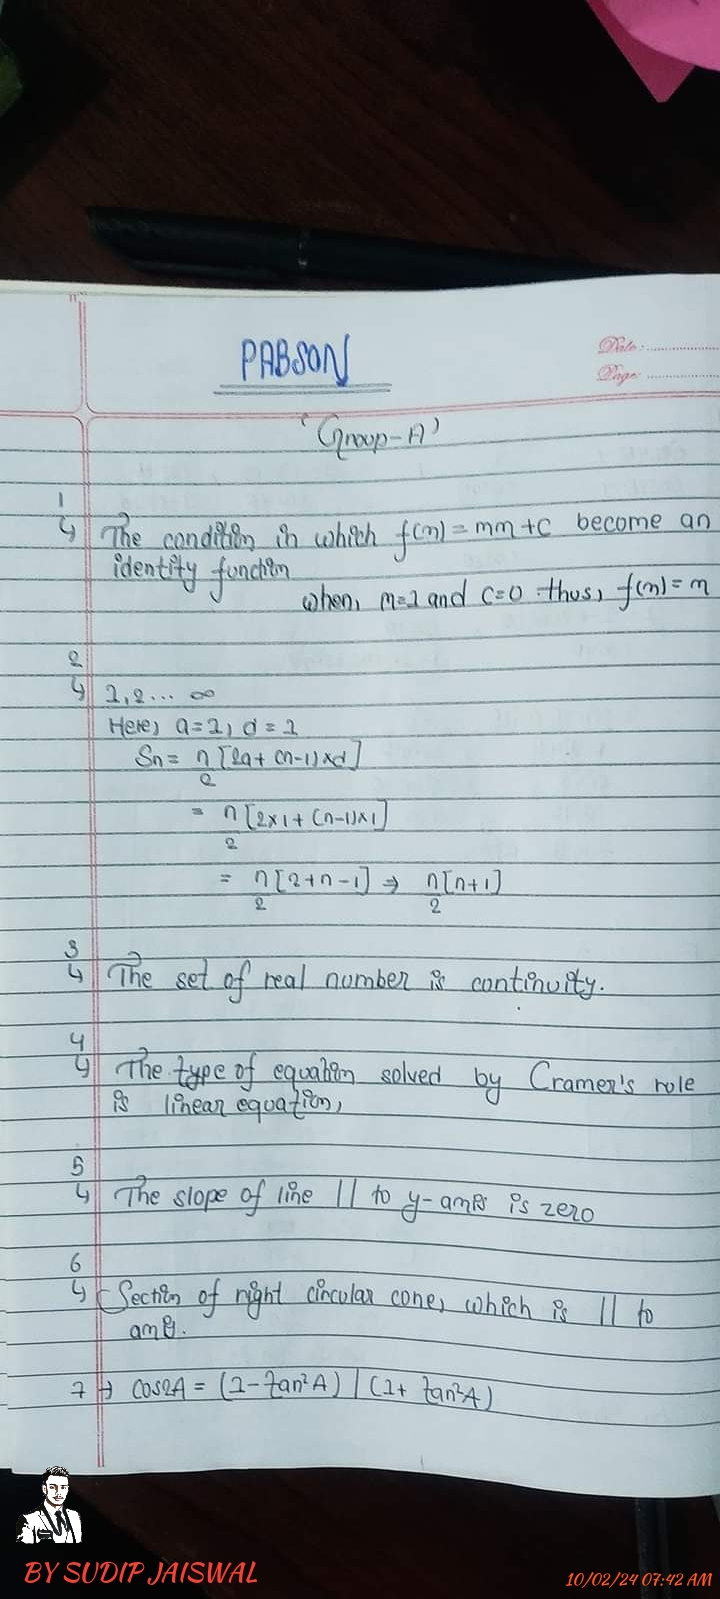 PABSON
Date:
Page:
'Group-A'
1
↳ The condition in which f(n) = mn + c become an
identity function
when, m=1 and c=0 thus, f(n) = n
2
↳ 1, 2 ... ∞
Here, a=1, d=1
Sn = n/2 [2a + (n-1)×d]
= n/2 [2×1 + (n-1)×1]
= n/2 [2+n-1] ⇒ n/2 [n+1]
3
↳ The set of real number is continuity.
4
↳ The type of equation solved by Cramer's role
is linear equation,
5
↳ The slope of line || to y-axis is zero
6
↳ Section of right circular cone, which is || to
axis.
7 → cos2A = (1-tan²A) / (1+ tan²A)
BY SUDIP JAISWAL
10/02/24 07:42 AM